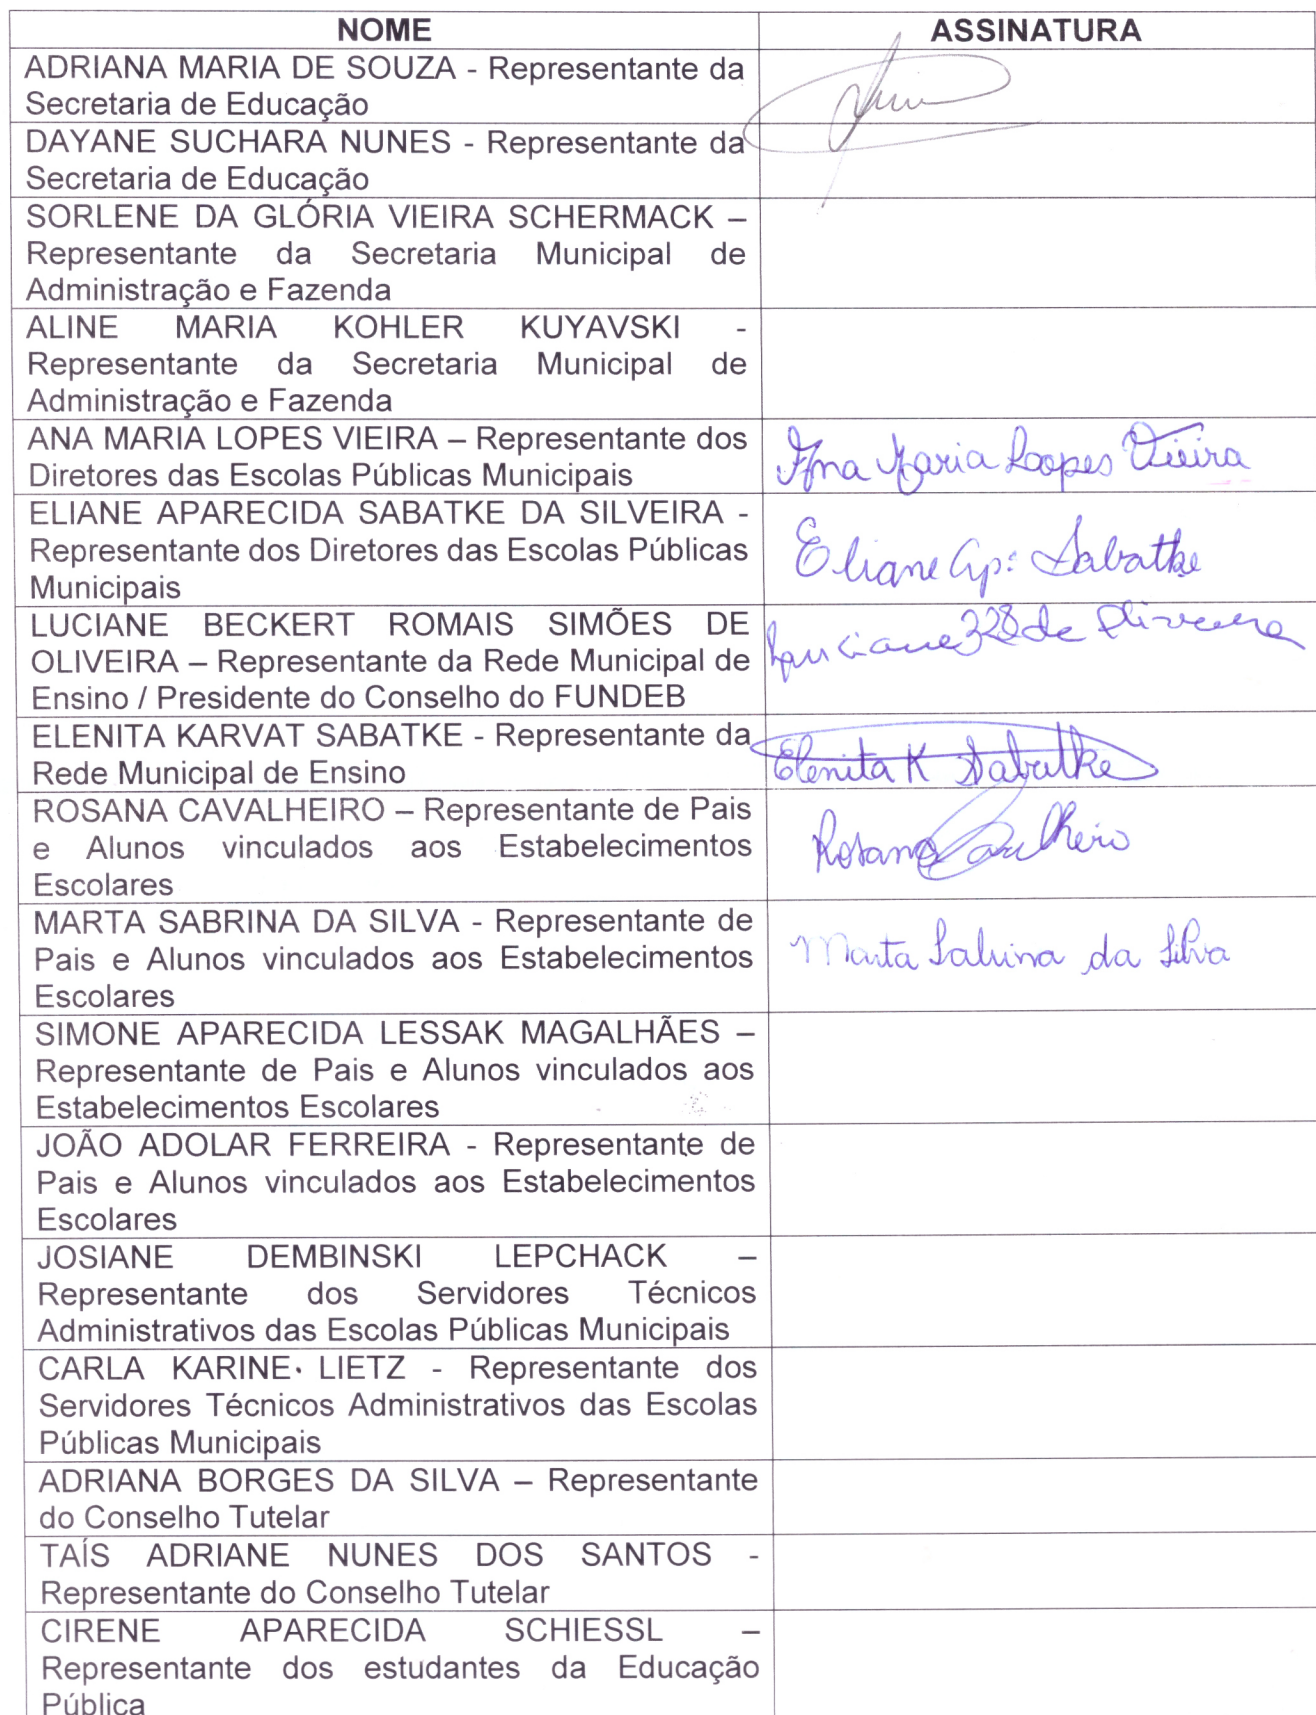 NOME ASSINATURA
ADRIANA MARIA DE SOUZA - Representante da
Secretaria de Educação
DAYANE SUCHARA NUNES - Representante da
Secretaria de Educação
SORLENE DA GLÓRIA VIEIRA SCHERMACK –
Representante da Secretaria Municipal de
Administração e Fazenda
ALINE MARIA KOHLER KUYAVSKI -
Representante da Secretaria Municipal de
Administração e Fazenda
ANA MARIA LOPES VIEIRA – Representante dos
Diretores das Escolas Públicas Municipais
Ana Maria Loopes Vieira
ELIANE APARECIDA SABATKE DA SILVEIRA -
Representante dos Diretores das Escolas Públicas
Municipais
Eliane Ap: Sabatke
LUCIANE BECKERT ROMAIS SIMÕES DE
OLIVEIRA – Representante da Rede Municipal de
Ensino / Presidente do Conselho do FUNDEB
Luciane de Oliveira
ELENITA KARVAT SABATKE - Representante da
Rede Municipal de Ensino
Elenita K Sabatke
ROSANA CAVALHEIRO – Representante de Pais
e Alunos vinculados aos Estabelecimentos
Escolares
Rosana Cavalheiro
MARTA SABRINA DA SILVA - Representante de
Pais e Alunos vinculados aos Estabelecimentos
Escolares
Marta Sabrina da Silva
SIMONE APARECIDA LESSAK MAGALHÃES –
Representante de Pais e Alunos vinculados aos
Estabelecimentos Escolares
JOÃO ADOLAR FERREIRA - Representante de
Pais e Alunos vinculados aos Estabelecimentos
Escolares
JOSIANE DEMBINSKI LEPCHACK –
Representante dos Servidores Técnicos
Administrativos das Escolas Públicas Municipais
CARLA KARINE LIETZ - Representante dos
Servidores Técnicos Administrativos das Escolas
Públicas Municipais
ADRIANA BORGES DA SILVA – Representante
do Conselho Tutelar
TAÍS ADRIANE NUNES DOS SANTOS -
Representante do Conselho Tutelar
CIRENE APARECIDA SCHIESSL –
Representante dos estudantes da Educação
Pública